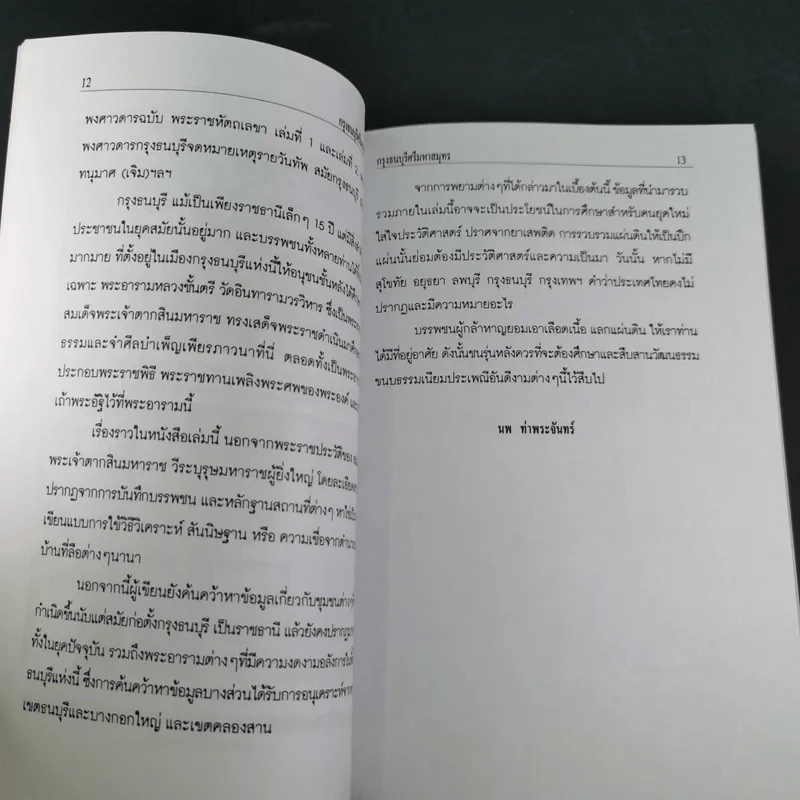 12
พงศาวดารฉบับ พระราชหัตถเลขา เล่มที่ 1 และเล่มที่ 2
พงศาวดารกรุงธนบุรีจดหมายเหตุรายวันทัพ สมัยกรุงธนบุรี
ทนุมาศ (เจิม)ฯลฯ
กรุงธนบุรี แม้เป็นเพียงราชธานีเล็กๆ 15 ปี
ประชาชนในยุคสมัยนั้นอยู่มาก และบรรพชนทั้งหลายท่านได้
หลากมาย ที่ตั้งอยู่ในเมืองกรุงธนบุรีแห่งนี้ให้อนุชนชั้นหลังได้
เฉพาะ พระอารามหลวงชั้นตรี วัดอินทารามวรวิหาร ซึ่งเป็น
สมเด็จพระเจ้าตากสินมหาราช ทรงเสด็จพระราชดำเนินมา
ธรรมและจำศีลบำเพ็ญเพียรภาวนาที่นี่ ตลอดทั้งเป็น
ประกอบพระราชพิธี พระราชทานเพลิงพระศพของพระองค์
เถ้าพระอัฐิไว้ที่พระอารามนี้
เรื่องราวในหนังสือเล่มนี้ นอกจากพระราชประวัติของ
พระเจ้าตากสินมหาราช วีระบุรุษมหาราชผู้ยิ่งใหญ่
ปรากฏจากการบันทึกบรรพชน และหลักฐานสถานที่ต่างๆ
เขียนแบบการใช้วิธีวิเคราะห์ สันนิษฐาน หรือ ความเชื่อจาก
บ้านที่ลือต่างๆนานา
นอกจากนี้ผู้เขียนยังค้นคว้าหาข้อมูลเกี่ยวกับชุมชน
กำเนิดขึ้นนับแต่สมัยก่อตั้งกรุงธนบุรี เป็นราชธานี แล้วยังคง
ทั้งในยุคปัจจุบัน รวมถึงพระอารามต่างๆที่มีความงดงามอลังการ
ธนบุรีแห่งนี้ ซึ่งการค้นคว้าหาข้อมูลบางส่วนได้รับการอนุเคราะห์
เขตธนบุรีและบางกอกใหญ่ และเขตคลองสาน
กรุงธนบุรีศรีมหาสมุทร 13
จากการพยามต่างๆที่ได้กล่าวมาในเบื้องต้นนี้ ข้อมูลที่นำมารวบ
รวมภายในเล่มนี้อาจจะเป็นประโยชน์ในการศึกษาสำหรับคนยุคใหม่
ใส่ใจประวัติศาสตร์ ปราศจากยาเสพติด การรวบรวมแผ่นดินให้เป็นปึก
แผ่นนั้นย่อมต้องมีประวัติศาสตร์และความเป็นมา วันนั้น หากไม่มี
สุโขทัย อยุธยา ลพบุรี กรุงธนบุรี กรุงเทพฯ คำว่าประเทศไทยคงไม่
ปรากฏและมีความหมายอะไร
บรรพชนผู้กล้าหาญยอมเอาเลือดเนื้อ แลกแผ่นดิน ให้เราท่าน
ได้มีที่อยู่อาศัย ดังนั้นชนรุ่นหลังควรที่จะต้องศึกษาและสืบสานวัฒนธรรม
ขนบธรรมเนียมประเพณีอันดีงามต่างๆนี้ไว้สืบไป
นพ ท่าพระจันทร์